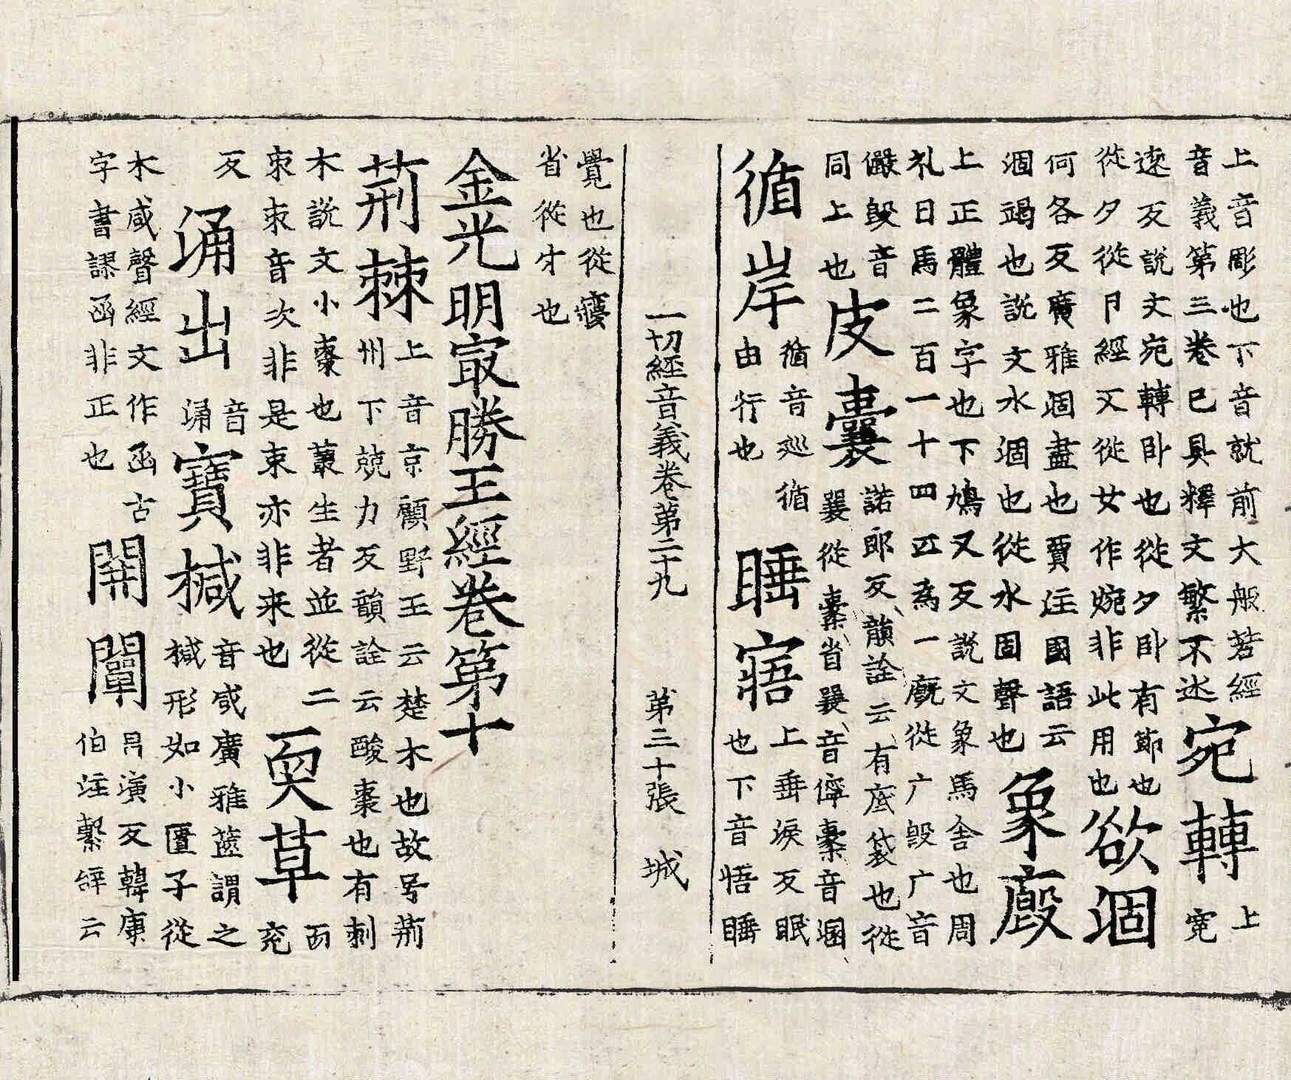 上音彫也下音就前大般若經
音義第三卷已具釋文繁不述
宛轉
上
寃
逺反説文宛轉臥也從夕臥有節也
從夕從卪經文從女作婉非此用也
欲涸
何各反廣雅涸盡也賈注國語云
涸竭也説文水涸也從水固聲也
象廄
上正體象字也下鳩又反説文象馬舍也周
礼曰馬二百一十四匹為一廄從广殳广音
儼殳音
同上也
皮囊
諾郎反韻詮云有底袋也從
襄從㯻省襄音儜㯻音溷
循岸
循音巡循
由行也
睡寤
上垂淚反眠
也下音悟睡
一切經音義卷第二十九 第三十張 城
覺也從㝱
省從也
金光明冣勝王經卷第十
荊棘
上音京顧野王云楚木也故号荊
州下兢力反韻詮云酸棗也有刺
木説文小棗也叢生者並從二
朿朿音次非是束亦非来也
耎草
而
兖
反
涌出
音
涌
寶椷
音咸廣雅篋謂之
椷形如小匱子從
木咸聲經文作函古
字書謬函非正也
開闡
昌演反韓康
伯注繫辝云